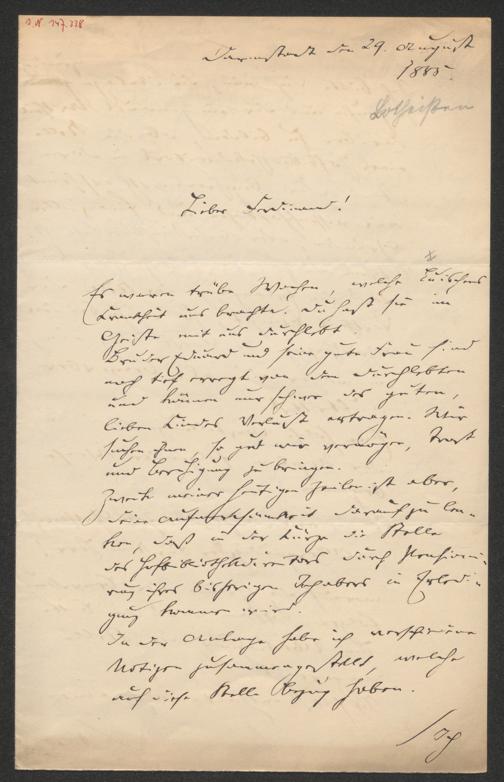 I.N. 147.338
Darmstadt den 29. August
1885.
Lotheissen
Lieber Ferdinand!
Es waren trübe Wochen, welche Luischens
Krankheit uns brachte. Du hast sie im
Geiste mit uns durchlebt
Bruder Eduard und seine gute Frau sind
noch tief erregt von dem Durchlebten
und können nur schwer des guten,
lieben Kindes Verlust ertragen. Wir
suchen ihnen, so gut wir vermögen, Trost
und Beruhigung zu bringen.
Zweck meiner heutigen Zeilen ist aber,
deine Aufmerksamkeit darauf zu len-
ken, daß in der Kürze die Stelle
des Hofbibliothekdirektors durch Pensioni-
rung ihres bisherigen Inhabers in Erledi-
gung kommen wird.
In der Anlage habe ich verschiedene
Notizen zusammengestellt, welche
auf diese Stelle Bezug haben.
Ich